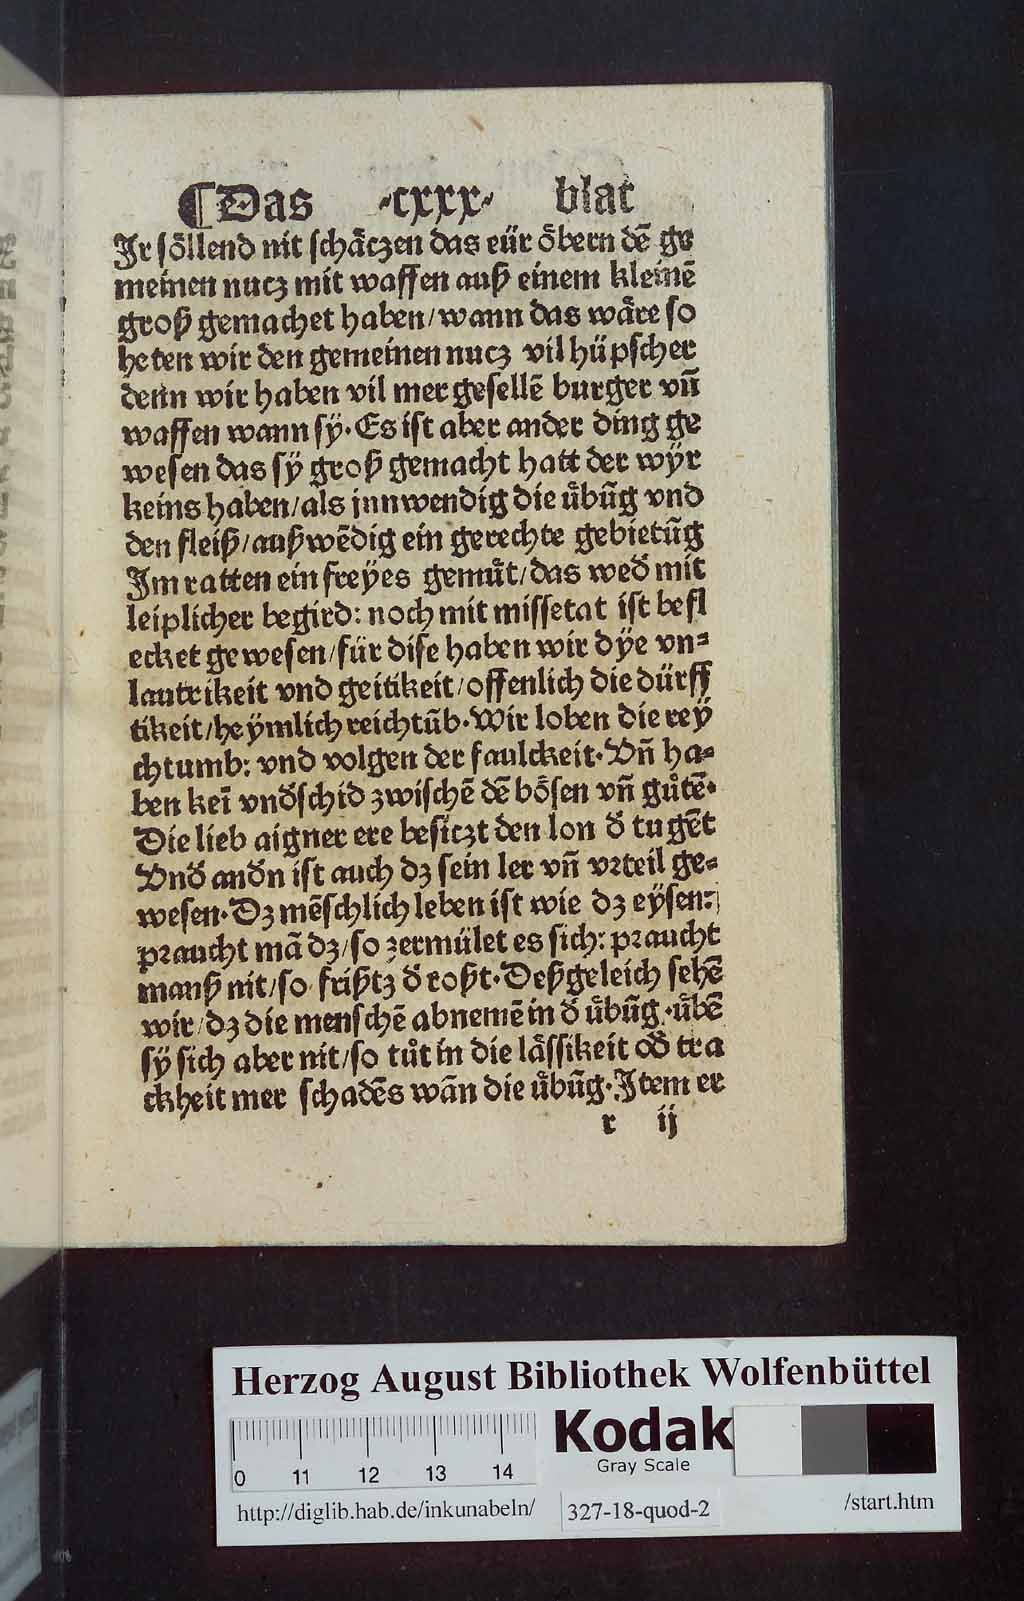 ¶Das ·cxxx· blat
Jr soͤllend nit schaͤczen das eür oͤbern dē ge
meinen nucz mit waffen auß einem kleinē
groß gemachet haben/wann das waͤre so
heten wir den gemeinen nucz vil hüpscher
denn wir haben vil mer gesellē burger vn̄
waffen wann sÿ·Es ist aber ander ding ge
wesen das sÿ groß gemacht hatt der wÿr
keins haben/als jnnwendig die uͤbūg vnd
den fleiß/außwēdig ein gerechte gebietūg
Jm ratten ein freÿes gemuͤt/das wed̕ mit
leiplicher begird: noch mit missetat ist befl
ecket gewesen/für dise haben wir dÿe vn⸗
lautrikeit vnd geitikeit/offenlich die dürff
tikeit/heÿmlich reichtūb·Wir loben die reÿ
chtumb: vnd volgen der faulckeit·Vn̄ ha⸗
ben kei̅ vnd̕schid zwischē dē boͤsen vn̄ guͦtē·
Die lieb aigner ere besiczt den lon d̕ tugēt
Vnd̕ and̕n ist auch dz sein ler vn̄ vꝛteil ge⸗
wesen·Dz mēschlich leben ist wie dz eÿsen:
pꝛaucht mā dz/so zermület es sich: pꝛaucht
manß nit/so frißtz d̕ roßt·Deßgeleich sehē
wir/dz die menschē abnemē in d̕ uͤbūg·uͤbē
sÿ sich aber nit/so tuͦt in die laͤssikeit od̕ tra
ckheit mer schadēs wān die uͤbūg·Jtem er
r ij
Herzog August Bibliothek Wolfenbüttel
0 11 12 13 14
Kodak
Gray Scale
http://diglib.hab.de/inkunabeln/ 327-18-quod-2 /start.htm